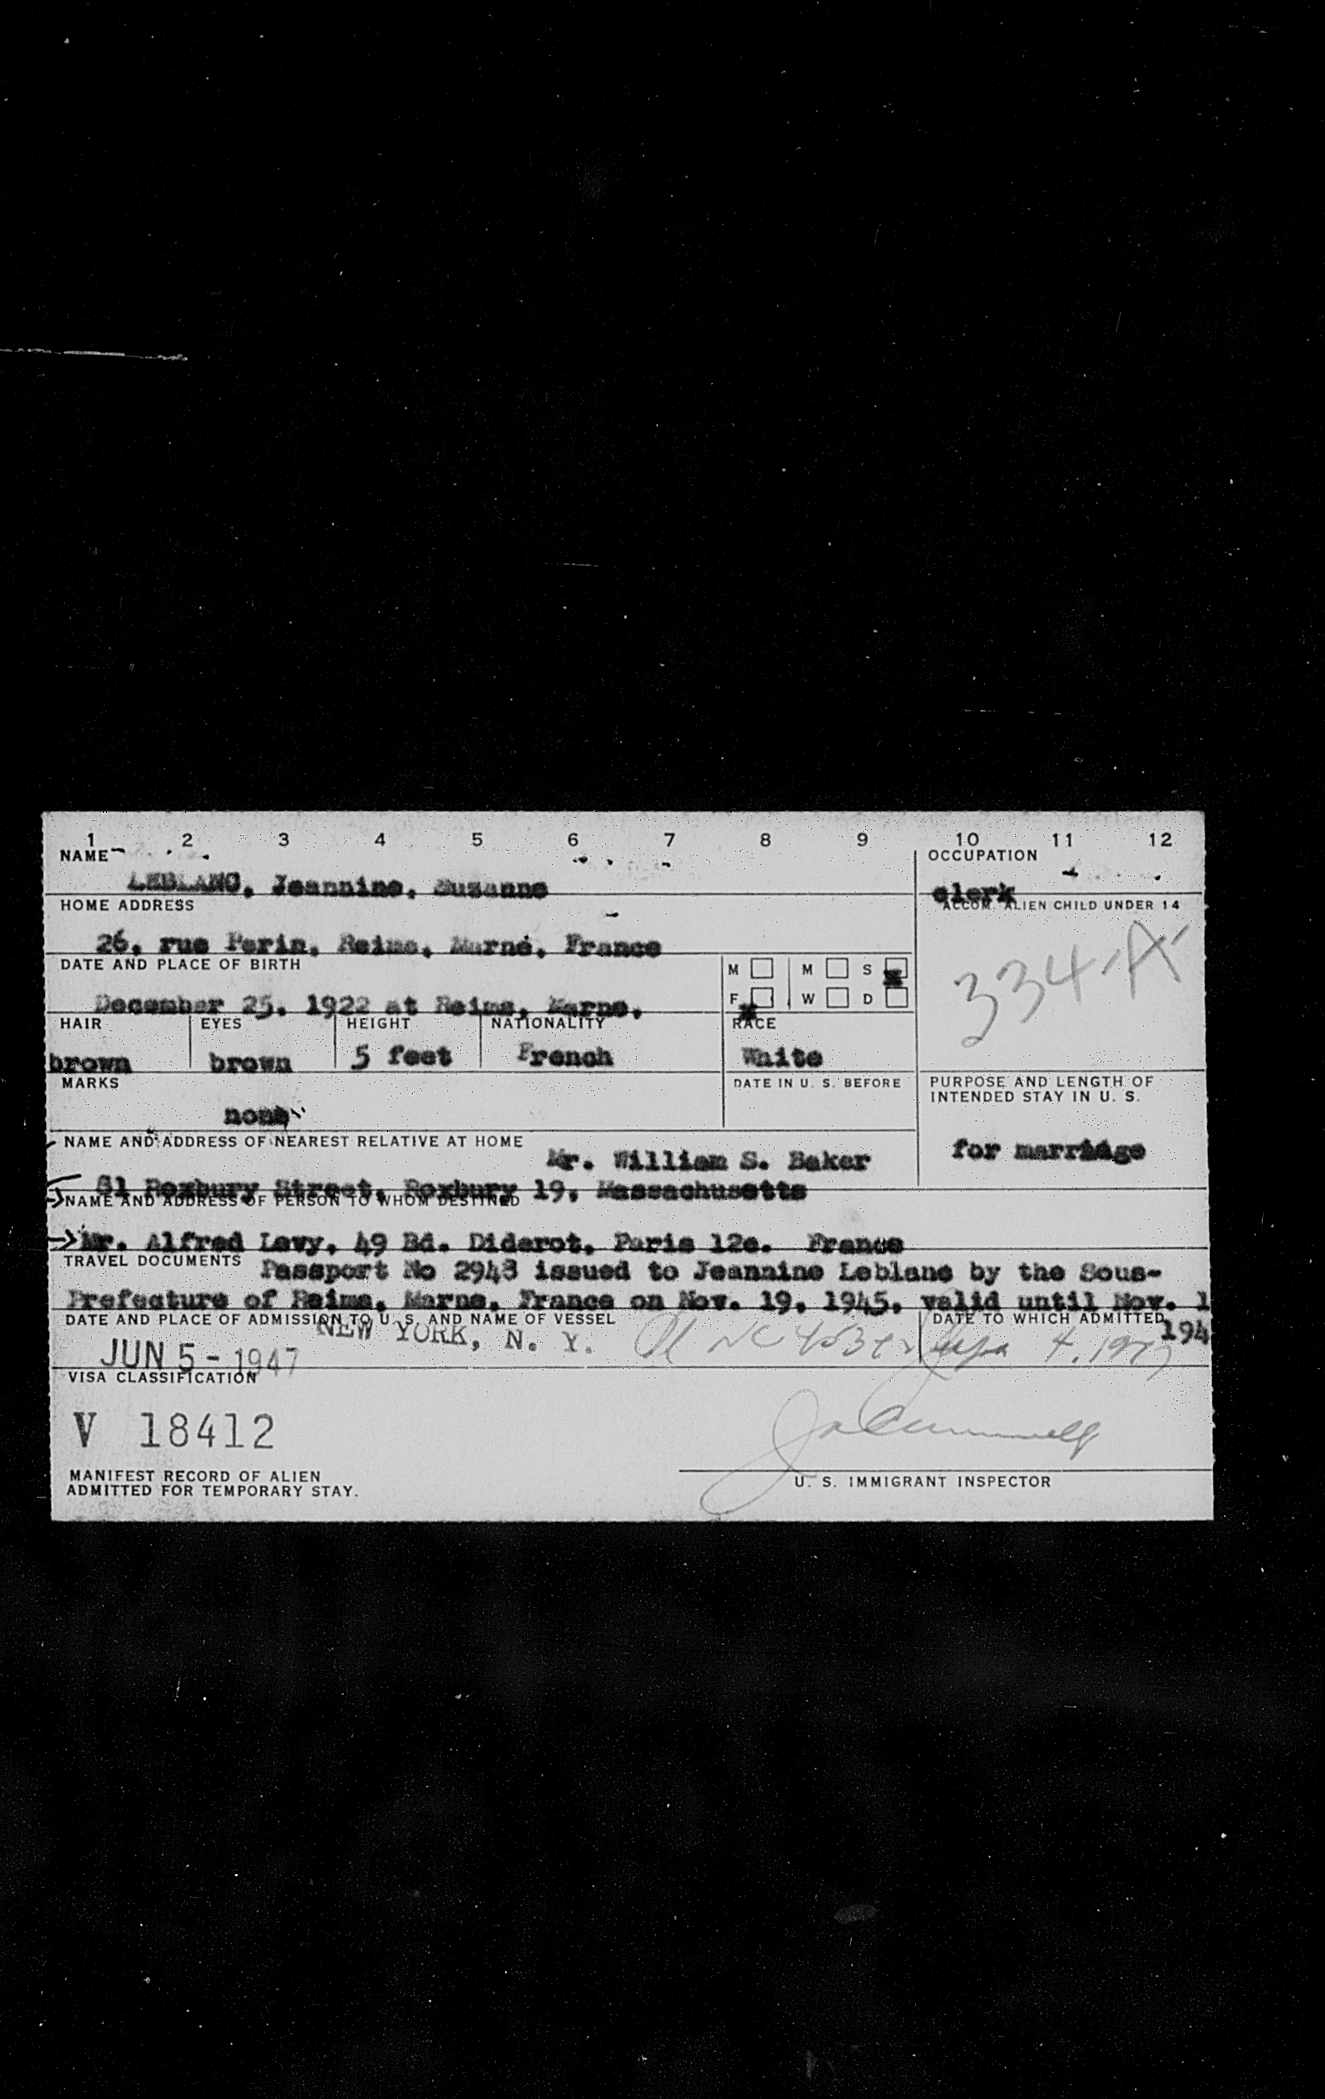 1 2 3 4 5 6 7 8 9 10 11 12
NAME OCCUPATION
LEBLANC, Jeannine, Suzanne clerk
HOME ADDRESS ACCOM. ALIEN CHILD UNDER 14
26, rue Perin, Reims, Marne, France
334-A-
DATE AND PLACE OF BIRTH M M S x
December 25, 1922 at Reims, Marne, F x W D
HAIR EYES HEIGHT NATIONALITY RACE
brown brown 5 feet French White
MARKS DATE IN U. S. BEFORE PURPOSE AND LENGTH OF
INTENDED STAY IN U. S.
none
for marriage
NAME AND ADDRESS OF NEAREST RELATIVE AT HOME
Mr. William S. Baker
81 Roxbury Street, Roxbury 19, Massachusetts
NAME AND ADDRESS OF PERSON TO WHOM DESTINED
Mr. Alfred Levy, 49 Bd. Diderot, Paris 12e. France
TRAVEL DOCUMENTS Passport No 2948 issued to Jeannine Leblanc by the Sous-
Prefecture of Reims, Marne, France on Nov. 19, 1945, valid until Nov. 1
DATE AND PLACE OF ADMISSION TO U. S. AND NAME OF VESSEL DATE TO WHICH ADMITTED 194
NEW YORK, N. Y.
JUN 5 - 1947
VISA CLASSIFICATION
V 18412
MANIFEST RECORD OF ALIEN
ADMITTED FOR TEMPORARY STAY.
U. S. IMMIGRANT INSPECTOR